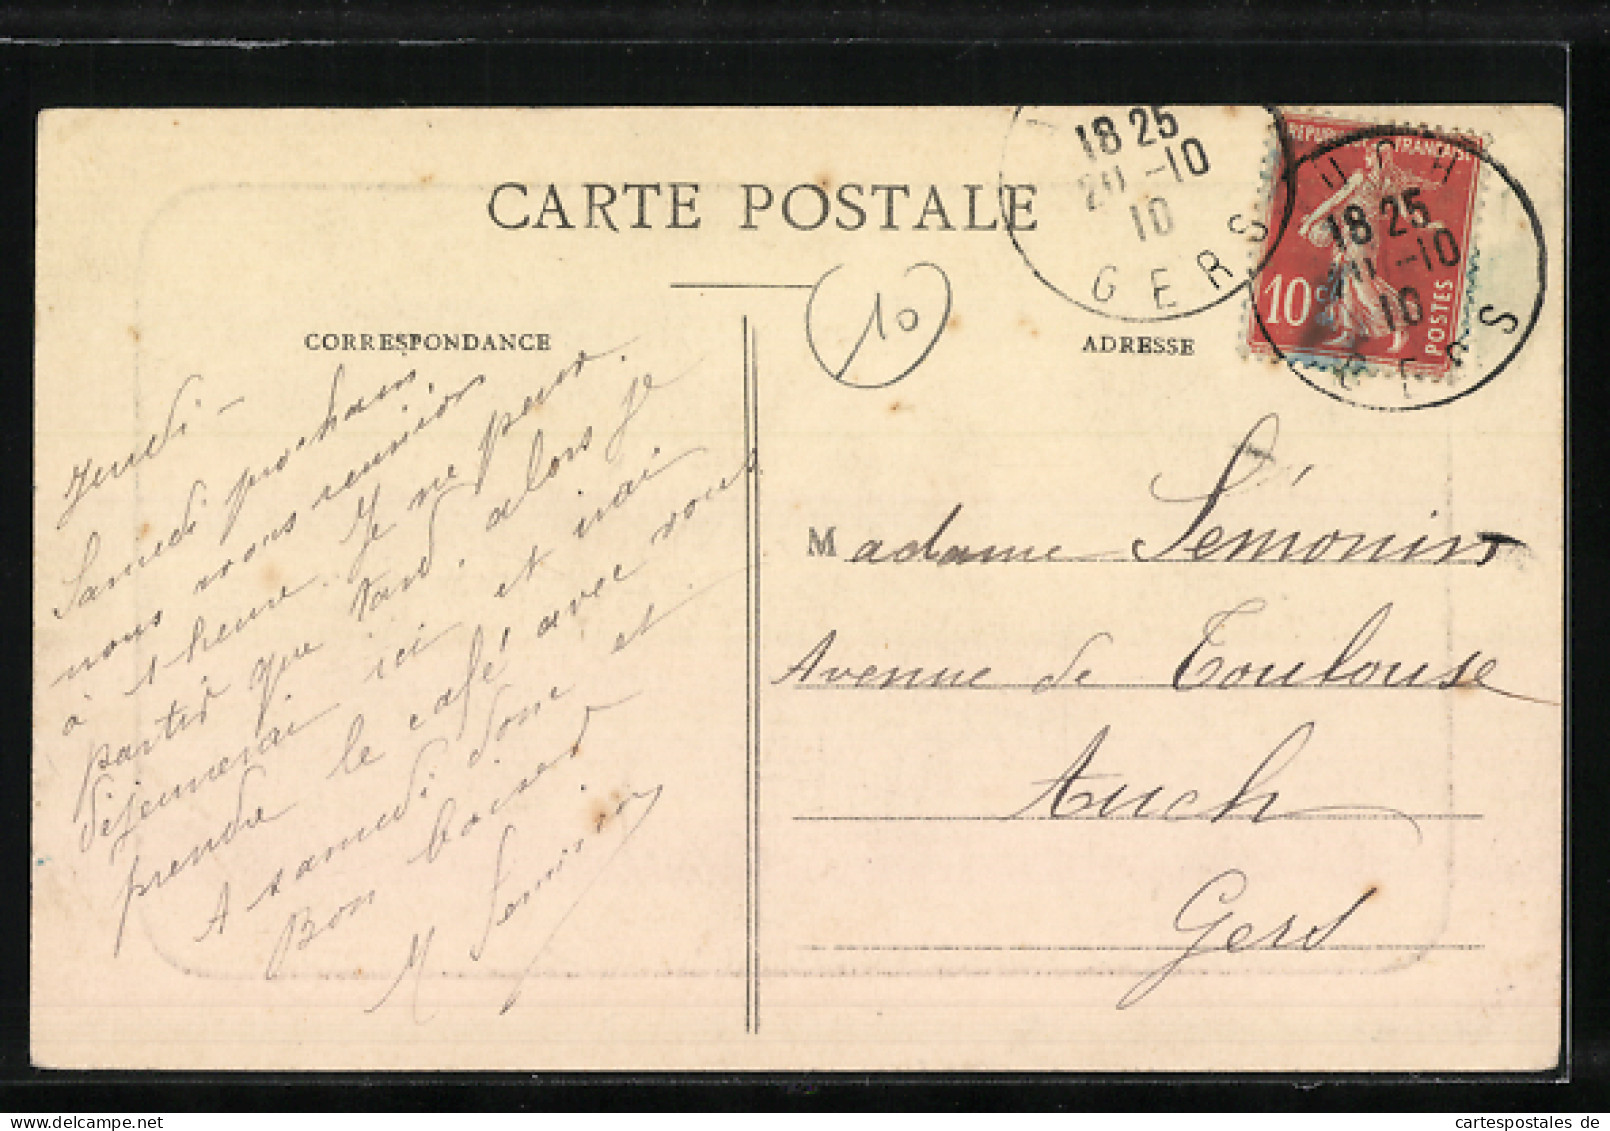 CARTE POSTALE
CORRESPONDANCE
ADRESSE
10
18 25
20 -10
10
GERS
REPUBLIQUE FRANÇAISE
10 c
POSTES
UCH
18 25
20 -10
10
GERS
Jeudi -
Samedi prochain,
nous nous reunion
à 1 heure. Je ne peux
partir que tard, alors je
déjeunerai ici et irai
prendre le café avec vous
A samedi donc et
Bon baiser
M. Semonin
Madame Sémonin
Avenue de Toulouse
Auch
Gers
cartespostales de